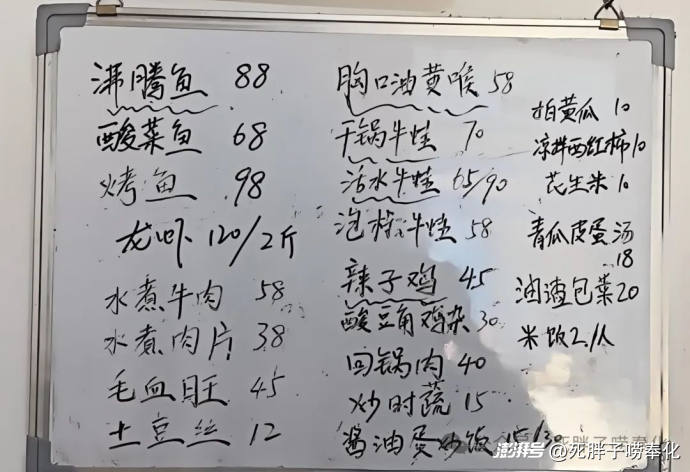 沸腾鱼 88
酸菜鱼 68
烤鱼 98
龙虾 120/2斤
水煮牛肉 58
水煮肉片 38
毛血旺 45
土豆丝 12
胸口油黄喉 58
干锅牛蛙 70
活水牛蛙 65/90
泡椒牛蛙 58
辣子鸡 45
酸豆角鸡杂 30
回锅肉 40
炒时蔬 15
酱油蛋炒饭 15/30
拍黄瓜 10
凉拌西红柿 10
花生米 10
青瓜皮蛋汤
18
油渣包菜 20
米饭 2/人
澎湃号@死胖子唠奉化